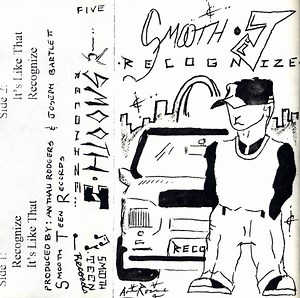 SMOOTH · E J
· RECOGNIZE ·
RECO
FIVE
RECOGNIZE
SMOOTH
SMOOTH
TEEN
RECORDS
PRODUCED BY: ANTHAU RODGERS & JOSEPH BARTLETT
SMOOTH TEEN RECORDS
Side 1:
Recognize
It's Like That
Side 2:
It's Like That
Recognize